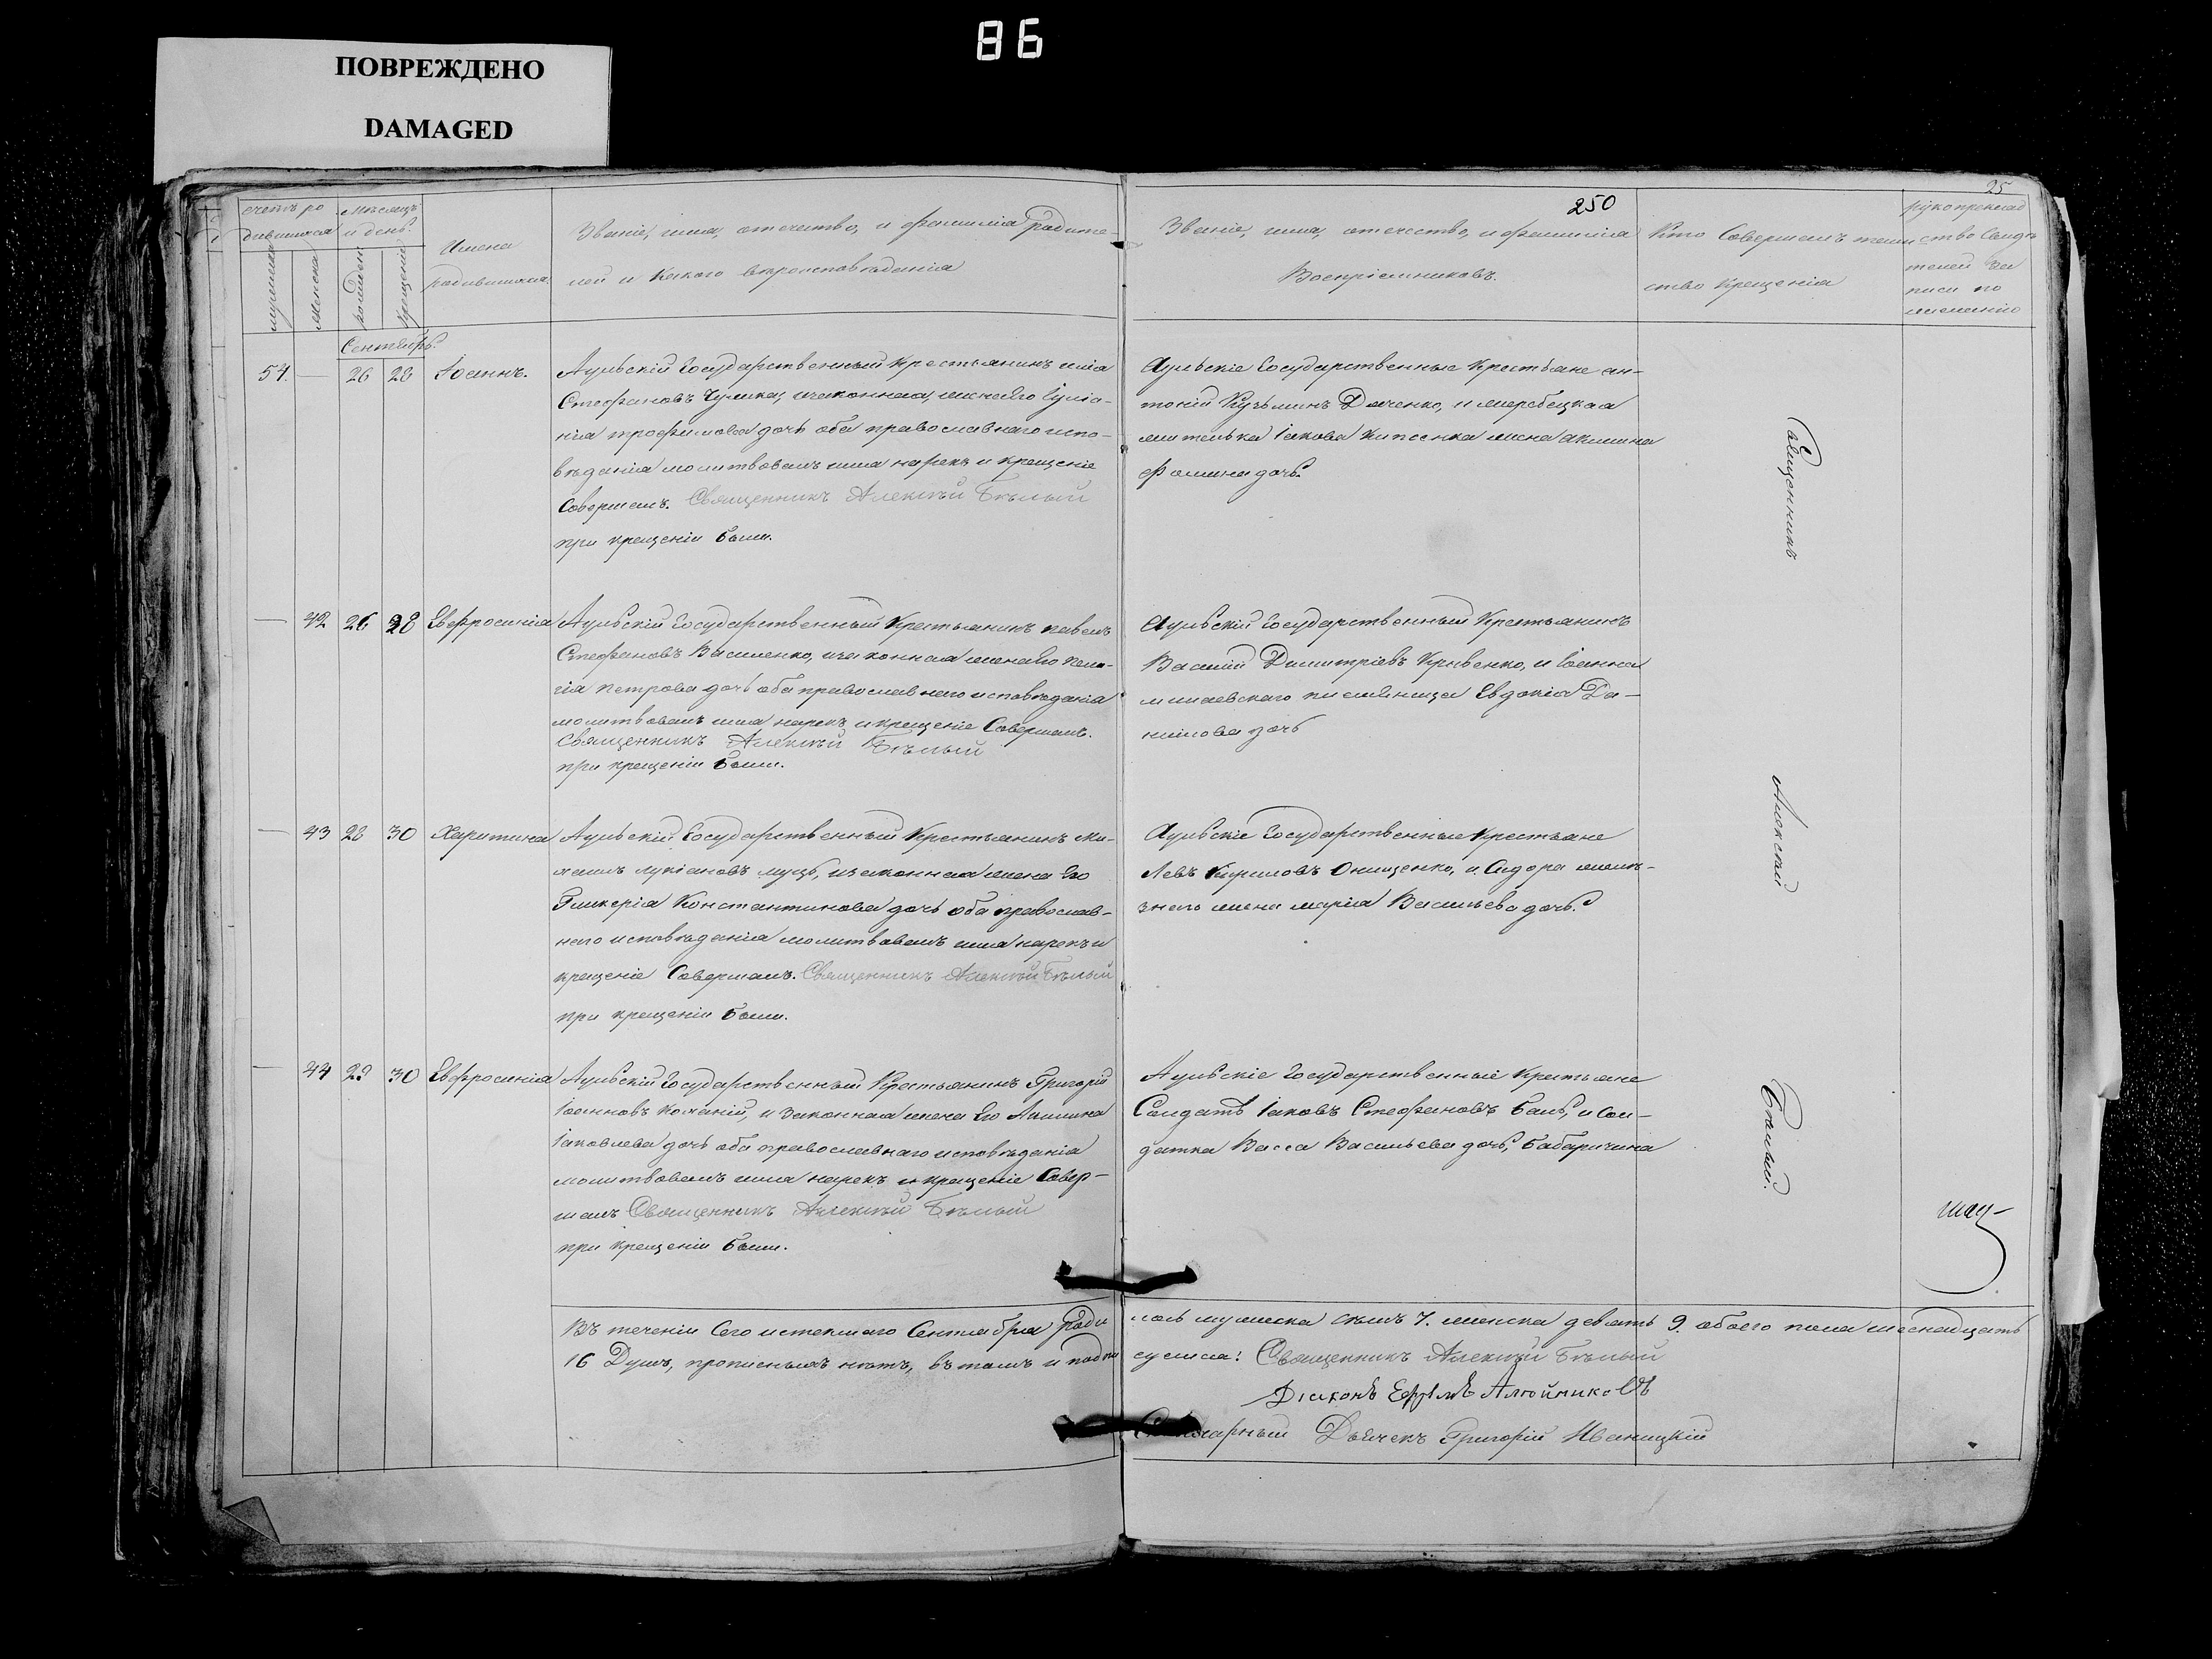 86
ПОВРЕЖДЕНО
DAMAGED
счетъ ро
дившихся
мѣсяцъ
и день.
мужеска
женска
рожденія
крещенія
Имена
родившихся.
Званіе, имя, отечество, и фамилія родите-
лей и какого вѣроисповѣданія
250
25
Званіе, имя, отечество, и фамилія
Воспріемниковъ.
Кто Совершалъ таин
ство Крещенія
ство Свидѣ
телей за
писи по
желанію
Сентябрь.
54. — 26 28 Іоаннъ.
Аульскій Государственный Крестьянинъ
Стефановъ Чумакъ, и законная жена его Іуліа-
нія Трофимова дочь оба православнаго испо-
вѣданія молитвовалъ имя нарекъ и крещеніе
Совершалъ. Священникъ Алексѣй Бѣлый
при крещеніи были.
Аульскіе Государственные Крестьяне Ан-
тоній Кузьминъ Дяченко, и
жителька Іакова жена Акилина
Фомина дочь.
— 42 26 28 Евфросинія
Аульскій Государственный Крестьянинъ Павелъ
Стефановъ Василенко, и законная жена его Пела-
гія Петрова дочь оба православнаго исповѣданія
молитвовалъ имя нарекъ и крещеніе Совершалъ.
Священникъ Алексѣй Бѣлый
при крещеніи были.
Аульскій Государственный Крестьянинъ
Василій Димитріевъ Кривенко, и Іоанна
племѣница Евдокія Да-
нилова дочь
— 43 28 30 Харитина
Аульскій Государственный Крестьянинъ Ми-
хаилъ Лукіановъ Муць, и законная жена Его
Гликерія Константинова дочь оба православ-
наго исповѣданія молитвовалъ имя нарекъ и
крещеніе Совершалъ. Священникъ Алексѣй Бѣлый
при крещеніи были.
Аульскіе Государственные Крестьяне
Левъ Кириловъ Онищенко, и Сидора
жена Марія Васильева дочь.
— 44 29 30 Евфросинія
Аульскій Государственный Крестьянинъ Григорій
Іоанновъ Коханій, и законная жена Его Акилина
Іаковлева дочь оба православнаго исповѣданія
молитвовалъ имя нарекъ и крещеніе Совер-
шалъ Священникъ Алексѣй Бѣлый
при крещеніи были.
Аульскіе Государственные Крестьяне
Солдатъ Іаковъ Стефановъ Баль, и Сол-
датка Васса Васильева дочь, Бабаричина
Священникъ
Алексѣй
Бѣлый.
Въ теченіи Сего истекшаго Сентября роди
лось мужеска семь 7. женска девять 9. обоего пола шеснацать
16 Душъ, прописныхъ нѣтъ, въ томъ и подпи
суемся: Священникъ Алексѣй Бѣлый
Діаконъ Ефимъ Алюйниковъ
Дьячекъ Григорій Иваницкій